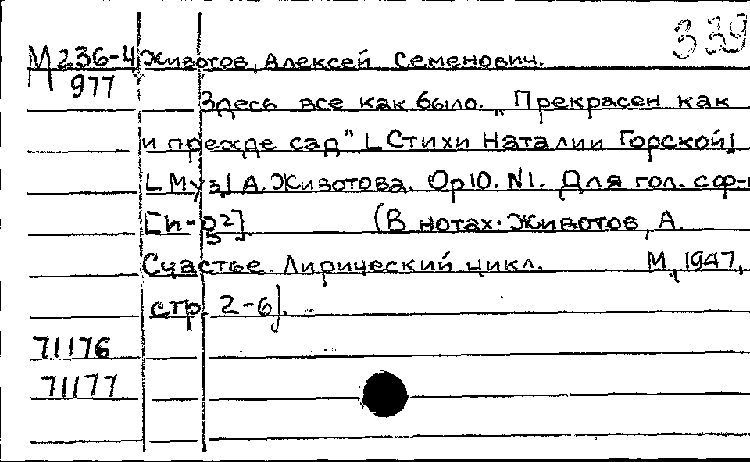 339
М236-4 Животов, Алексей Семенович.
977
Здесь все как было. „Прекрасен как
и прежде сад" [Стихи Наталии Горской]
[Муз.] А. Животова. Op10. N1. Для гол. с ф-
(В нотах: Животов, А.
Счастье. Лирический цикл. М., 1947,
стр. 2-6).
71176
71177